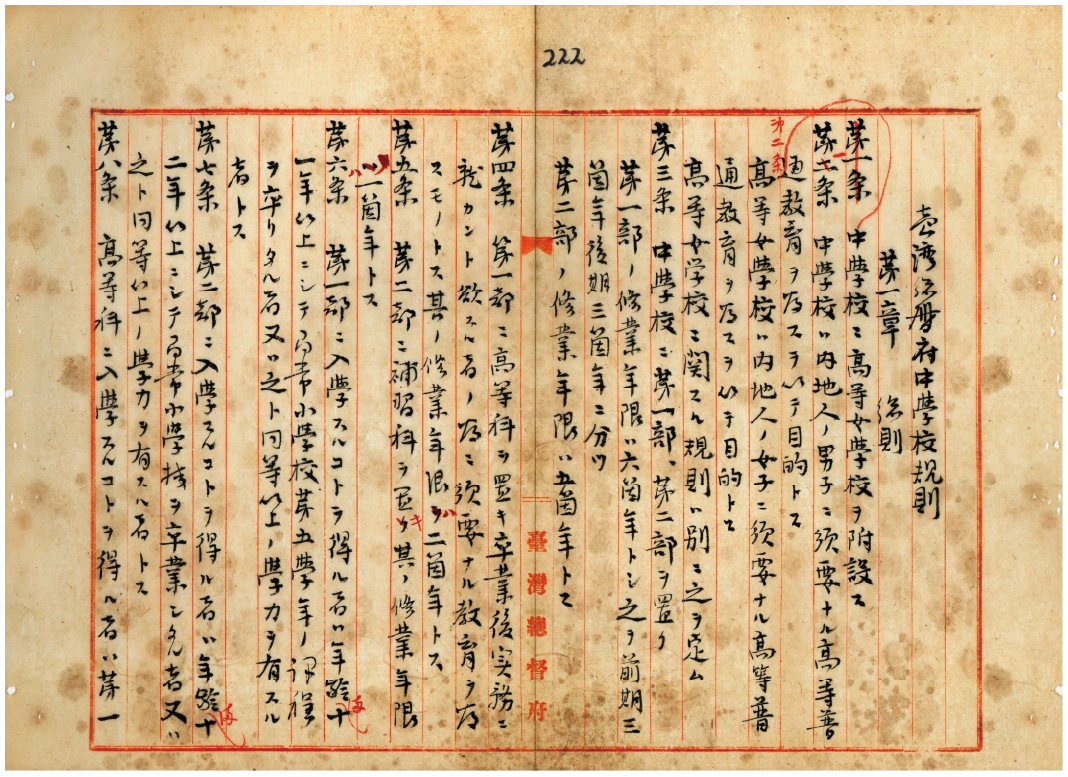 222
臺灣総督府中學校規則
第一章　総則
第一条　中學校ニ高等女學校ヲ附設ス
第二条
第七条　中學校ハ内地人ノ男子ニ須要ナル高等普
通教育ヲ為スヲ以テ目的トス
高等女學校ハ内地人ノ女子ニ須要ナル高等普
通教育ヲ為スヲ以テ目的トス
高等女学校ニ関スル規則ハ別ニ之ヲ定ム
第三条　中學校ニ第一部、第二部ヲ置ク
第一部ノ修業年限ハ六箇年トシ之ヲ前期三
箇年後期三箇年ニ分ツ
第二部ノ修業年限ハ五箇年トス
臺灣總督府
第四条　第一部ニ高等科ヲ置キ卒業後実務ニ
就カント欲スル者ノ為ニ須要ナル教育ヲ為
スモノトス其ノ修業年限ヲハ二箇年トス
第五条　第二部ニ補習科ヲ置クキ其ノ修業年限
ハ一箇年トス
第六条　第一部ニ入學スルコトヲ得ル者ハ年齢十
一年以上ニシテ尋常小學校第五學年ノ課程
ヲ卒リタル者又ハ之ト同等以上ノ學力ヲ有スル
者トス
第七条　第二部ニ入學スルコトヲ得ル者ハ年齢十
二年以上ニシテ尋常小學校ヲ卒業シタル者又ハ
之ト同等以上ノ學力ヲ有スル者トス
第八条　高等科ニ入學スルコトヲ得ル者ハ第一